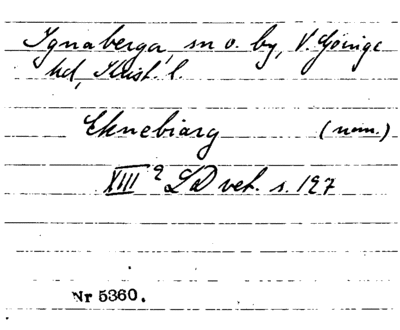 Ignaberga, sn o. by, V. Göinge
hd, Krist. l.
Eknebiarg (nom.)
XIII 2 LD vet. s. 127
Nr 5360.